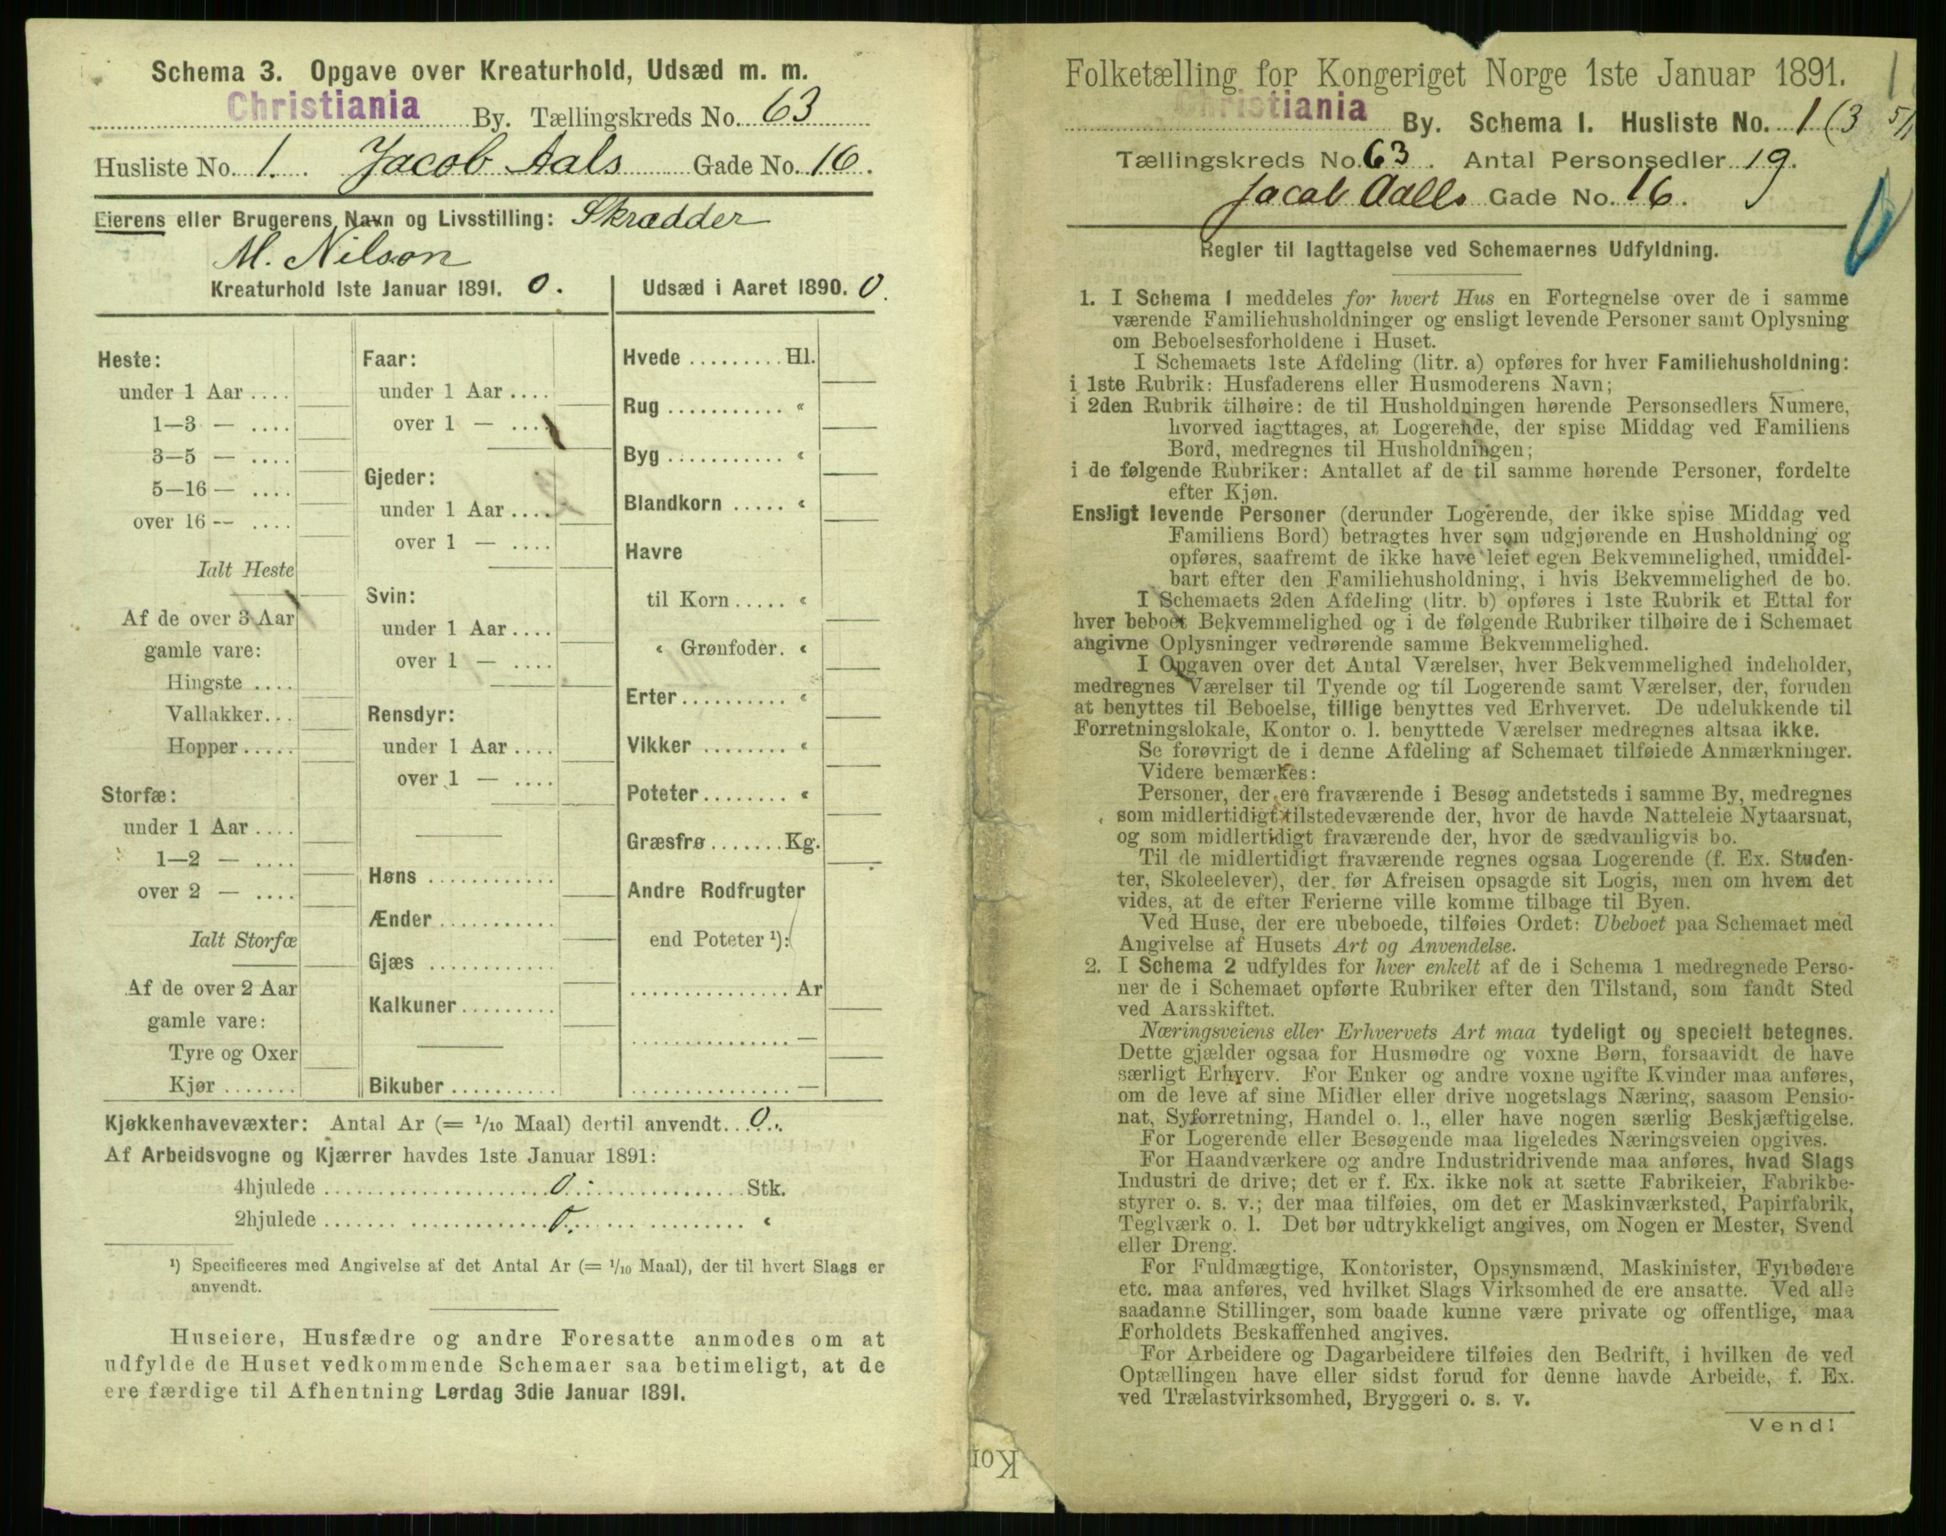 Schema 3. Opgave over Kreaturhold, Udsæd m. m.
Christiania By. Tællingskreds No. 63
Husliste No. 1. Jacob Aals Gade No. 16.
Eierens eller Brugerens Navn og Livsstilling: Skrædder
M. Nilson
Kreaturhold 1ste Januar 1891. 0.
Heste:
under 1 Aar ....
1—3 — ....
3—5 — ....
5—16 — ....
over 16 — ....
Ialt Heste
Af de over 3 Aar
gamle vare:
Hingste ....
Vallakker...
Hopper.....
Storfæ:
under 1 Aar ....
1—2 — ....
over 2 — ....
Ialt Storfæ
Af de over 2 Aar
gamle vare:
Tyre og Oxer
Kjør .......
Faar:
under 1 Aar ....
over 1 — ....
Gjeder:
under 1 Aar ....
over 1 — ....
Svin:
under 1 Aar ....
over 1 — ....
Rensdyr:
under 1 Aar ....
over 1 — ....
Høns ............
Ænder ...........
Gjæs ............
Kalkuner.........
Bikuber..........
Udsæd i Aaret 1890. 0.
Hvede ......... Hl.
Rug ........... «
Byg ........... «
Blandkorn ..... «
Havre
til Korn ..... «
« Grønfoder. «
Erter .......... «
Vikker ........ «
Poteter ........ «
Græsfrø ....... Kg.
Andre Rodfrugter
end Poteter ¹):
............... Ar
............... —
............... —
Kjøkkenhavevæxter: Antal Ar (= 1/10 Maal) dertil anvendt. 0.
Af Arbeidsvogne og Kjærrer havdes 1ste Januar 1891:
4hjulede .......... 0. .......... Stk.
2hjulede .......... 0. .......... «
¹) Specificeres med Angivelse af det Antal Ar (= 1/10 Maal), der til hvert Slags er
anvendt.
Huseiere, Husfædre og andre Foresatte anmodes om at
udfylde de Huset vedkommende Schemaer saa betimeligt, at de
ere færdige til Afhentning Lørdag 3die Januar 1891.
Kor
Folketælling for Kongeriget Norge 1ste Januar 1891.
Christiania By. Schema I. Husliste No. 1 (3
Tællingskreds No. 63. Antal Personsedler 19.
Jacob Aalls Gade No. 16.
Regler til Iagttagelse ved Schemaernes Udfyldning.
1. I Schema 1 meddeles for hvert Hus en Fortegnelse over de i samme
værende Familiehusholdninger og ensligt levende Personer samt Oplysning
om Beboelsesforholdene i Huset.
I Schemaets 1ste Afdeling (litr. a) opføres for hver Familiehusholdning:
i 1ste Rubrik: Husfaderens eller Husmoderens Navn;
i 2den Rubrik tilhøire: de til Husholdningen hørende Personsedlers Numere,
hvorved iagttages, at Logerende, der spise Middag ved Familiens
Bord, medregnes til Husholdningen;
i de følgende Rubriker: Antallet af de til samme hørende Personer, fordelte
efter Kjøn.
Ensligt levende Personer (derunder Logerende, der ikke spise Middag ved
Familiens Bord) betragtes hver som udgjørende en Husholdning og
opføres, saafremt de ikke have leiet egen Bekvemmelighed, umiddel-
bart efter den Familiehusholdning, i hvis Bekvemmelighed de bo.
I Schemaets 2den Afdeling (litr. b) opføres i 1ste Rubrik et Ettal for
hver beboet Bekvemmelighed og i de følgende Rubriker tilhøire de i Schemaet
angivne Oplysninger vedrørende samme Bekvemmelighed.
I Opgaven over det Antal Værelser, hver Bekvemmelighed indeholder,
medregnes Værelser til Tyende og til Logerende samt Værelser, der, foruden
at benyttes til Beboelse, tillige benyttes ved Erhvervet. De udelukkende til
Forretningslokale, Kontor o. l. benyttede Værelser medregnes altsaa ikke.
Se forøvrigt de i denne Afdeling af Schemaet tilføiede Anmærkninger.
Videre bemærkes:
Personer, der ere fraværende i Besøg andetsteds i samme By, medregnes
som midlertidigt tilstedeværende der, hvor de havde Natteleie Nytaarsnat,
og som midlertidigt fraværende der, hvor de sædvanligvis bo.
Til de midlertidigt fraværende regnes ogsaa Logerende (f. Ex. Studen-
ter, Skoleelever), der, før Afreisen opsagde sit Logis, men om hvem det
vides, at de efter Ferierne ville komme tilbage til Byen.
Ved Huse, der ere ubeboede, tilføies Ordet: Ubeboet paa Schemaet med
Angivelse af Husets Art og Anvendelse.
2. I Schema 2 udfyldes for hver enkelt af de i Schema 1 medregnede Perso-
ner de i Schemaet opførte Rubriker efter den Tilstand, som fandt Sted
ved Aarsskiftet.
Næringsveiens eller Erhvervets Art maa tydeligt og specielt betegnes.
Dette gjælder ogsaa for Husmødre og voxne Børn, forsaavidt de have
særligt Erhverv. For Enker og andre voxne ugifte Kvinder maa anføres,
om de leve af sine Midler eller drive nogetslags Næring, saasom Pensio-
nat, Syforretning, Handel o. l., eller have nogen særlig Beskjæftigelse.
For Logerende eller Besøgende maa ligeledes Næringsveien opgives.
For Haandværkere og andre Industridrivende maa anføres, hvad Slags
Industri de drive; det er f. Ex. ikke nok at sætte Fabrikeier, Fabrikbe-
styrer o. s. v.; der maa tilføies, om det er Maskinværksted, Papirfabrik,
Teglværk o. l. Det bør udtrykkeligt angives, om Nogen er Mester, Svend
eller Dreng.
For Fuldmægtige, Kontorister, Opsynsmænd, Maskinister, Fyrbødere
etc. maa anføres, ved hvilket Slags Virksomhed de ere ansatte. Ved alle
saadanne Stillinger, som baade kunne være private og offentlige, maa
Forholdets Beskaffenhed angives.
For Arbeidere og Dagarbeidere tilføies den Bedrift, i hvilken de ved
Optællingen have eller sidst forud for denne havde Arbeide, f. Ex.
ved Trælastvirksomhed, Bryggeri o. s. v.
Vend!